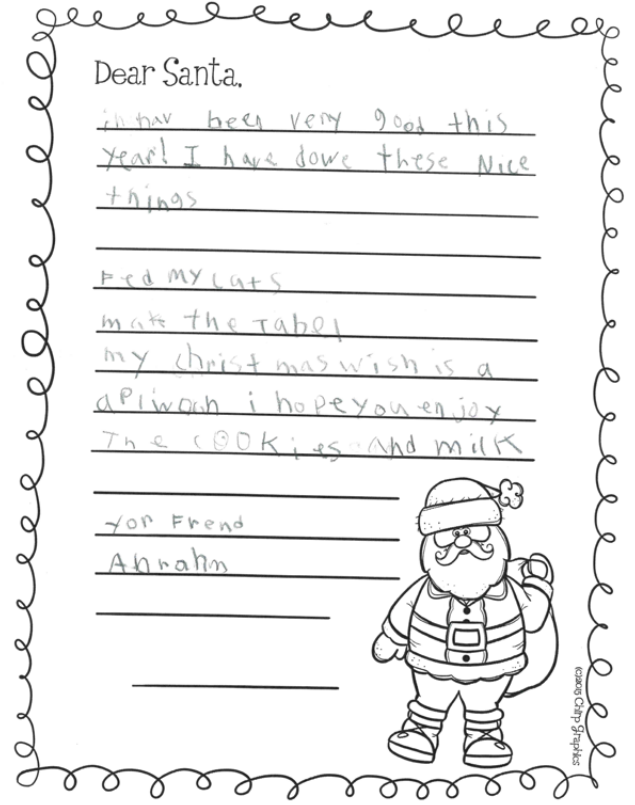 Dear Santa,
i hav been very good this
year! I have dowe these Nice
things
Fed my cats
mak the Tabel
my christmas wish is a
aplwach i hope you enjoy
The cookies and milk
yor Frend
Ahrahn
(c)2015 Chirp Graphics